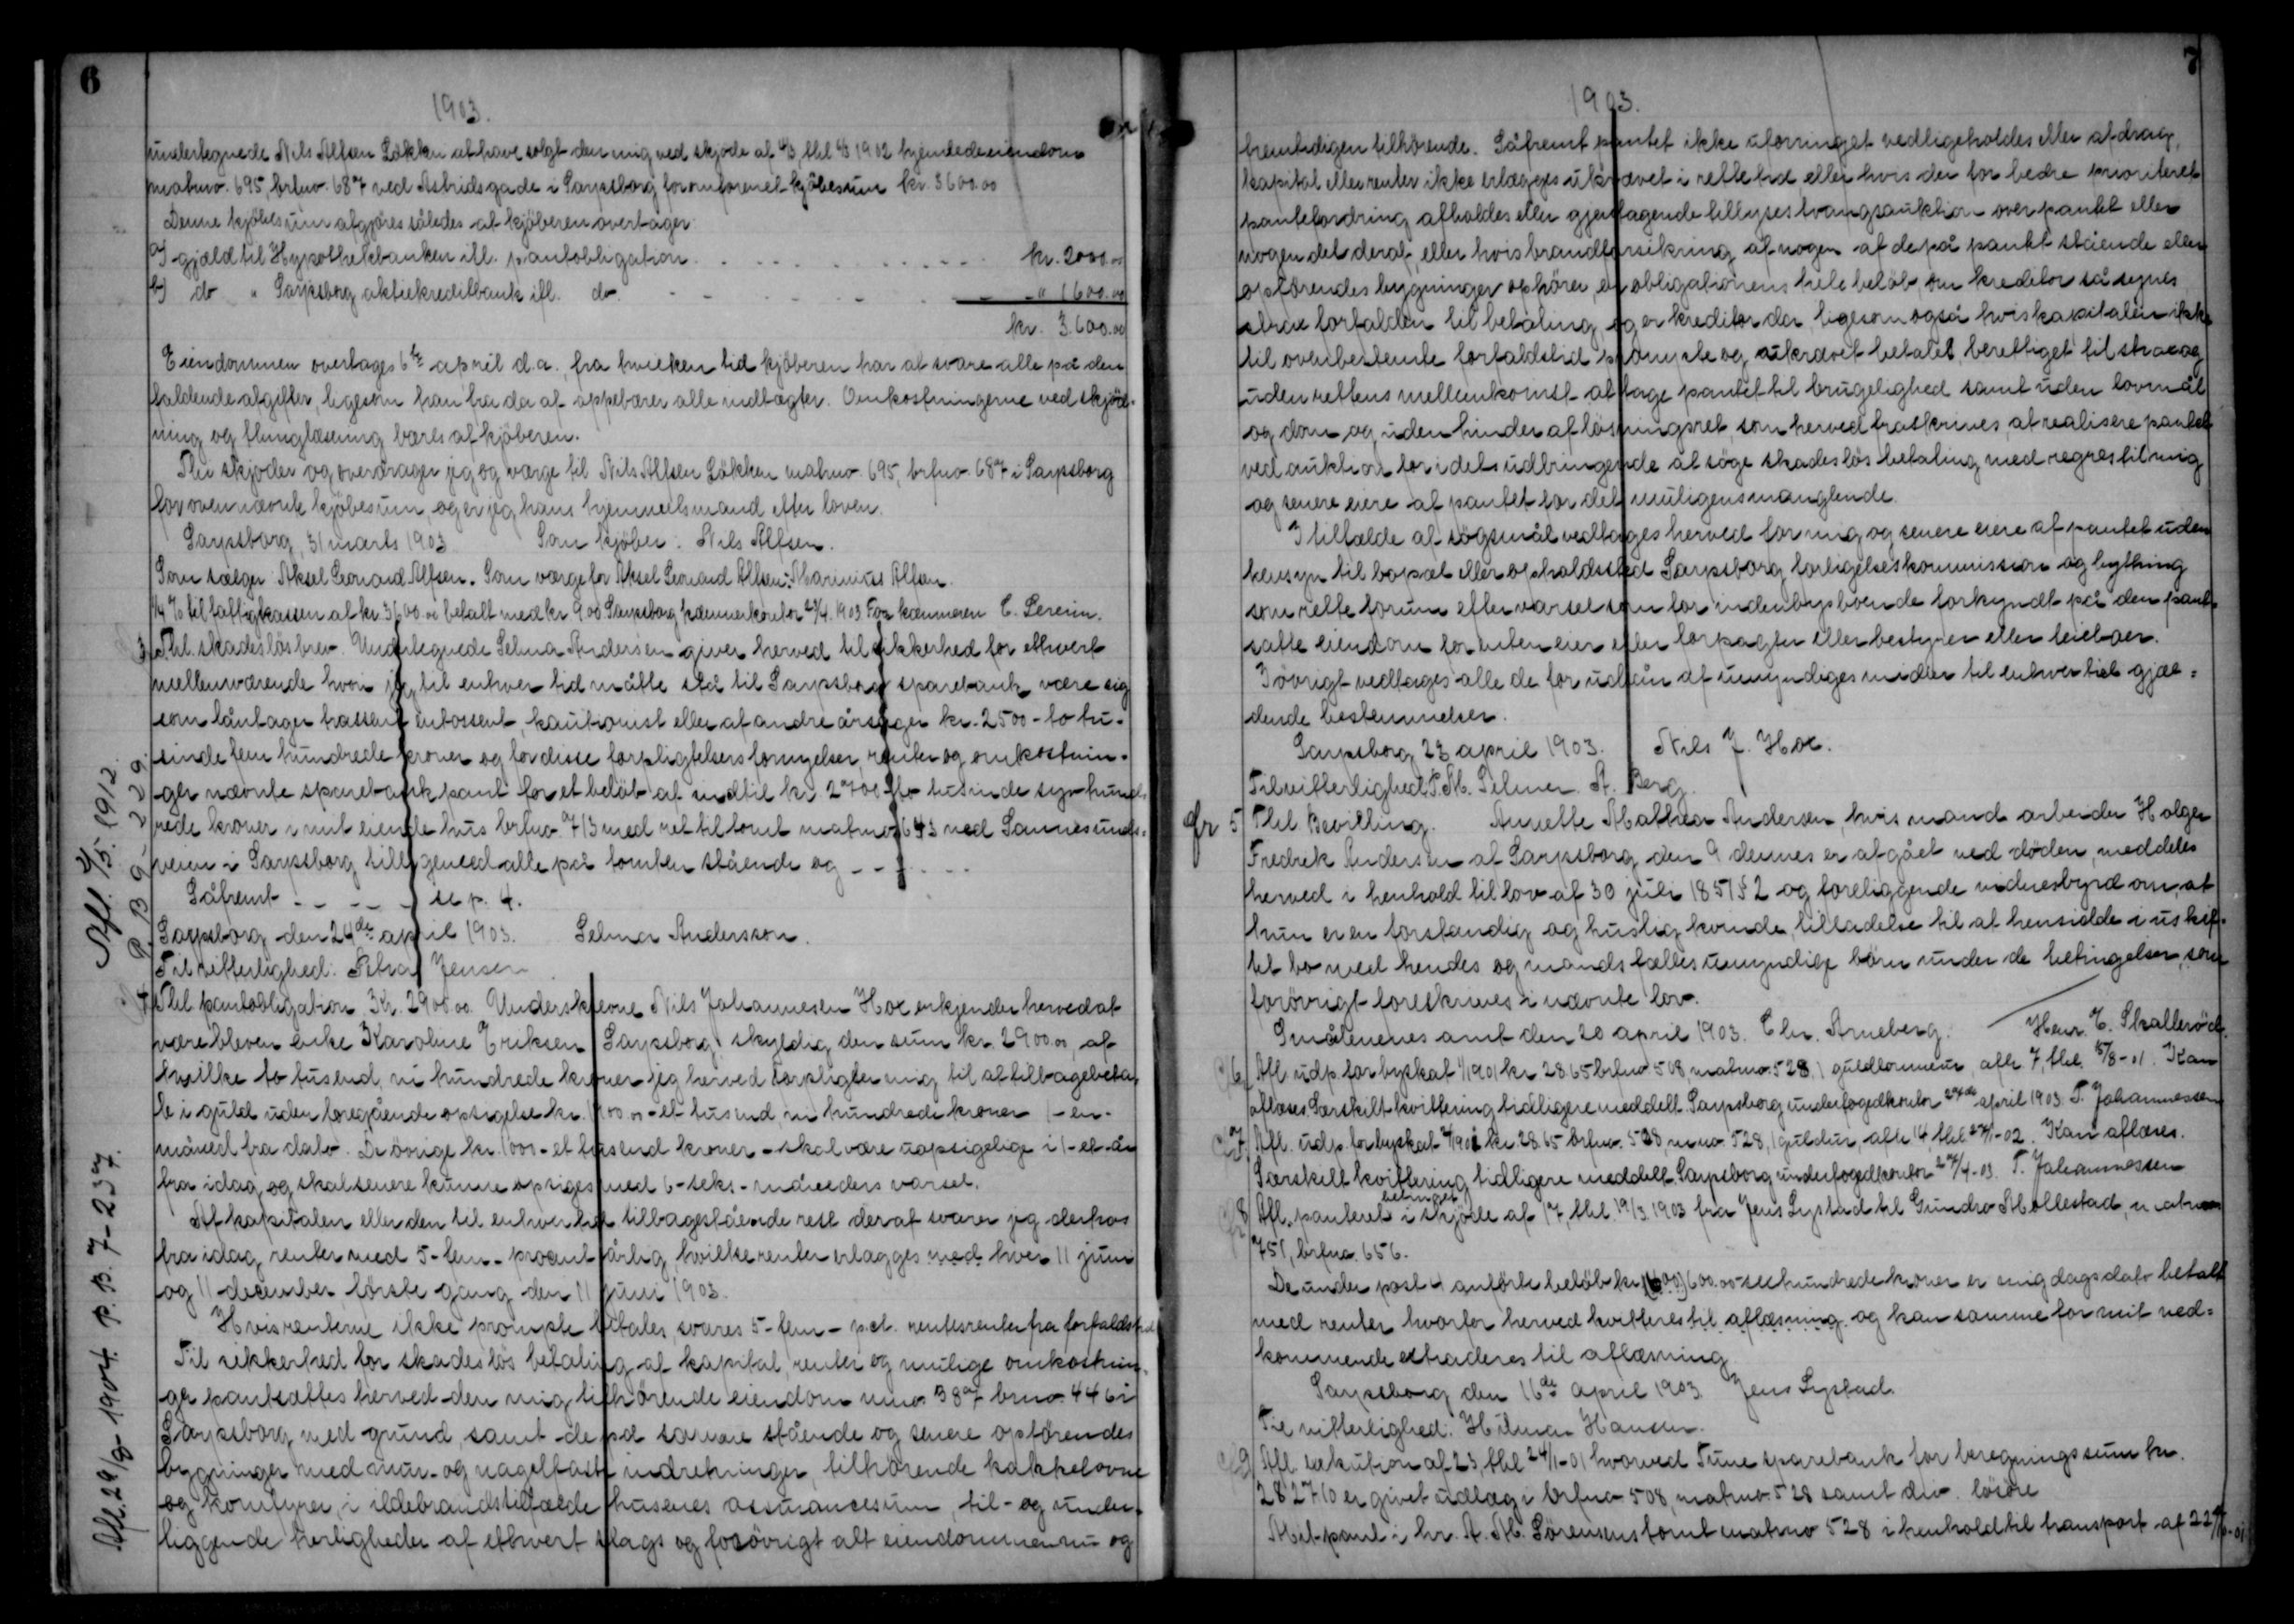 6
1903.
undertegnede Nils Alfsen Løkken at have solgt den mig ved skjøde af 4/3, thl 6/3 1902 hjemlede eiendom
matrno. 695, brfno. 687 ved Astridsgade i Sarpsborg for omforenet kjøbesum kr. 3600.00
Denne kjøbesum afgjøres således at kjøberen overtager
a) gjæld til Hypothekbanken ifl. pantobligation . . . . . . . . . . kr. 2000.00
b) do " Sarpsborg aktiekreditbank ifl. do. - - - - - - - " 1600.00
kr. 3.600.00
Eiendommen overtages 6te april d.a., fra hvicken tid kjøberen har at svare alle på den
faldende afgifter, ligesom han fra da af oppebærer alle indtægter. Omkostningerne ved skjød-
ning og thinglæsning bæres af kjøberen.
Thi skjøder og overdrager jeg og værge til Nils Alfsen Løkken matrno. 695, brfno. 687 i Sarpsborg
for ovennævnte kjøbesum, og er jeg hans hjemmelsmand efter loven.
Sarpsborg, 31 marts 1903 Som kjøber: Nils Alfsen.
Som sælger Aksel Leonard Alfsen. Som værge for Aksel Leonard Alfsen: Marinius Alfsen.
1/4 % til fattigkassen af kr. 3600.00 betalt med kr 9.00 Sarpsborg kæmnerkontor 23/4. 1903. For kæmneren C.
3 Thl. skadesløsbrev. Undertegnede Selma Andersen giver herved til sikkerhed for ethvert
mellemværende hvori jeg til enhver tid måtte stå til Sarpsborg sparebank være sig
som låntager trassent, endossent, kautionist eller af andre årsager kr. 2500 - to tu-
sinde fem hundrede kroner og for disse forpligtelsers fornyelser, renter og omkostnin-
ger nævnte sparebank pant for et beløb af indtil kr. 2700 - to tusinde syv hund-
rede kroner i mit eiende hus brfno. 713 med ret til tomt matrno 643 ved Sannesunds-
veien i Sarpsborg tilligemed alle på tomten stående og - - - - -
Såfremt - - - - se p. 4.
Sarpsborg den 24de april 1903. Selma Andersson.
Til vitterlighed: Petra Jensen
4 Thl pantobligation. Kr. 2900.00. Underskrevne Nils Johannesen Hoe erkjender herved at
være bleven enke Karoline Eriksen Sarpsborg skyldig den sum kr. 2900.00, af
hvilke to tusend, ni hundrede kroner jeg herved forpligter mig til at tilbagebeta-
le i guld uden foregående opsigelse kr. 1900.00 - et tusend, ni hundrede kroner 1 - en -
måned fra dato. De øvrige kr. 1000 - et tusend kroner - skal være uopsigelige i 1 - et - år
fra idag og skal senere kunne opsiges med 6 - seks - måneders varsel.
Af kapitalen eller den til enhver tid tilbagestående rest deraf svarer jeg derhos
fra idag renter med 5 - fem - procent årlig hvilke renter erlægges med hver 11 juni
og 11 december, første gang den 11 juni 1903.
Hvis renterne ikke prompte betales svares 5 - fem - pct. rentesrenter fra forfaldstid
Til sikkerhed for skadesløs betaling af kapital, renter og mulige omkostnin-
ger pantsættes herved den mig tilhørende eiendom mno 387 brno. 446 i
Sarpsborg med grund, samt de på samme stående og senere opførendes
bygninger med mur- og nagelfaste indretninger, tilhørende kakkelovne
og komfyrer, i ildebrandstilfælde husenes assurancesum, til- og under-
liggende herligheder af ethvert slags og forøvrigt alt eiendommen nu og
Afl. 2/5. 1912.
P. B. 9 - 229.
Afl. 29/8 - 1904. P. B. 7 - 237.
7
1903.
fremtidigen tilhørende. Såfremt pantet ikke uforringet vedligeholdes eller afdrag,
kapital eller renter ikke erlægges ukrævet i rette tid eller hvis der for bedre prioriteret
pantefordring afholdes eller gjentagende tillyses tvangsauktion over pantet eller
nogen del deraf, eller hvis brandforsikring af nogen af de på pantet stående eller
opførendes bygninger ophører, er obligationens hele beløb, om kreditor så synes
strax forfalden til betaling og er kreditor da, ligesom også hvis kapitalen ikke
til ovenbestemte forfaldstid prompte og ukrævet betales, berettiget til strax og
uden rettens mellemkomst at tage pantet til brugelighed samt uden lovmål
og dom og uden hinder af løsningsret, som herved fraskrives, at realisere pantet
ved auktion for i dets udbringende at søge skadesløs betaling med regres til mig
og senere eiere af pantet for det muligens manglende.
I tilfælde af søgsmål vedtages herved for mig og senere eiere af pantet uden
hensyn til bopæl eller opholdssted Sarpsborg forligelseskommission og bything
som rette forum efter varsel som for indenbys boende forkyndt på den pant-
satte eiendom for enten eier eller forpagter eller bestyrer eller leieboer.
Iøvrigt vedtages alle de for udlån af umyndiges midler til enhver tid gjæl-
dende bestemmelser.
Sarpsborg 23 april 1903. Nils J. Hoe.
Til vitterlighed: P. M. Selmer. A. Berg.
gr 5 Thl Bevilling. Annette Mathea Andersen, hvis mand arbeider Holger
Fredrik Andersen af Sarpsborg den 9 dennes er afgået ved døden, meddeles
herved i henhold til lov af 30 juli 1851 § 2 og foreliggende vidnesbyrd om, at
hun er en forstandig og huslig kvinde, tilladelse til at hensidde i uskif-
tet bo med hendes og mands fælles umyndige børn under de betingelser, som
forøvrigt foreskrives i nævnte lov.
Smålenenes amt den 20 april 1903. Chr. Arneberg. Henr. E. Skallerød.
6 Afl udp. for byskat 1/1901 kr 28.65 brfno 508, matrno. 528, afh 7, thl. 15/8 - 01. Kan
aflæses Særskilt kvittering tidligere meddelt. Sarpsborg underfogedkontor 27de april 1903. T. Johannessen
7 Afl. udp. for byskat 2/1901 kr 28.65 brfno. 508, mno. 528, afh 14, thl 27/1-02. Kan aflæses.
Særskilt kvittering tidligere meddelt. Sarpsborg underfogedkontor 27/4-03. T. Johannessen
betinget
8 Afl. panteret i skjøde af 17, thl. 19/3 1903 fra Jens Lystad til Gundro Mollestad, matrno
751, brfno. 656.
De under post 4 anførte beløb kr (600) 600.00 sexhundrede kroner er mig dags dato betalt
med renter hvorfor herved kvitteres til aflæsning og kan samme for mit ved-
kommende extraderes til aflæsning
Sarpsborg den 16de april 1903 Jens Lystad.
Til vitterlighed: Hilma Hansen.
9 Afl. exekution af 23, thl 24/1-01 hvorved Tune sparebank for beregningssum kr.
2827.10 er givet udlæg i brfno 508, matrno. 528 samt div. løsøre
Mit pant i hr. A. M. Sörensens tomt matrno 528 i henhold til transport af 22